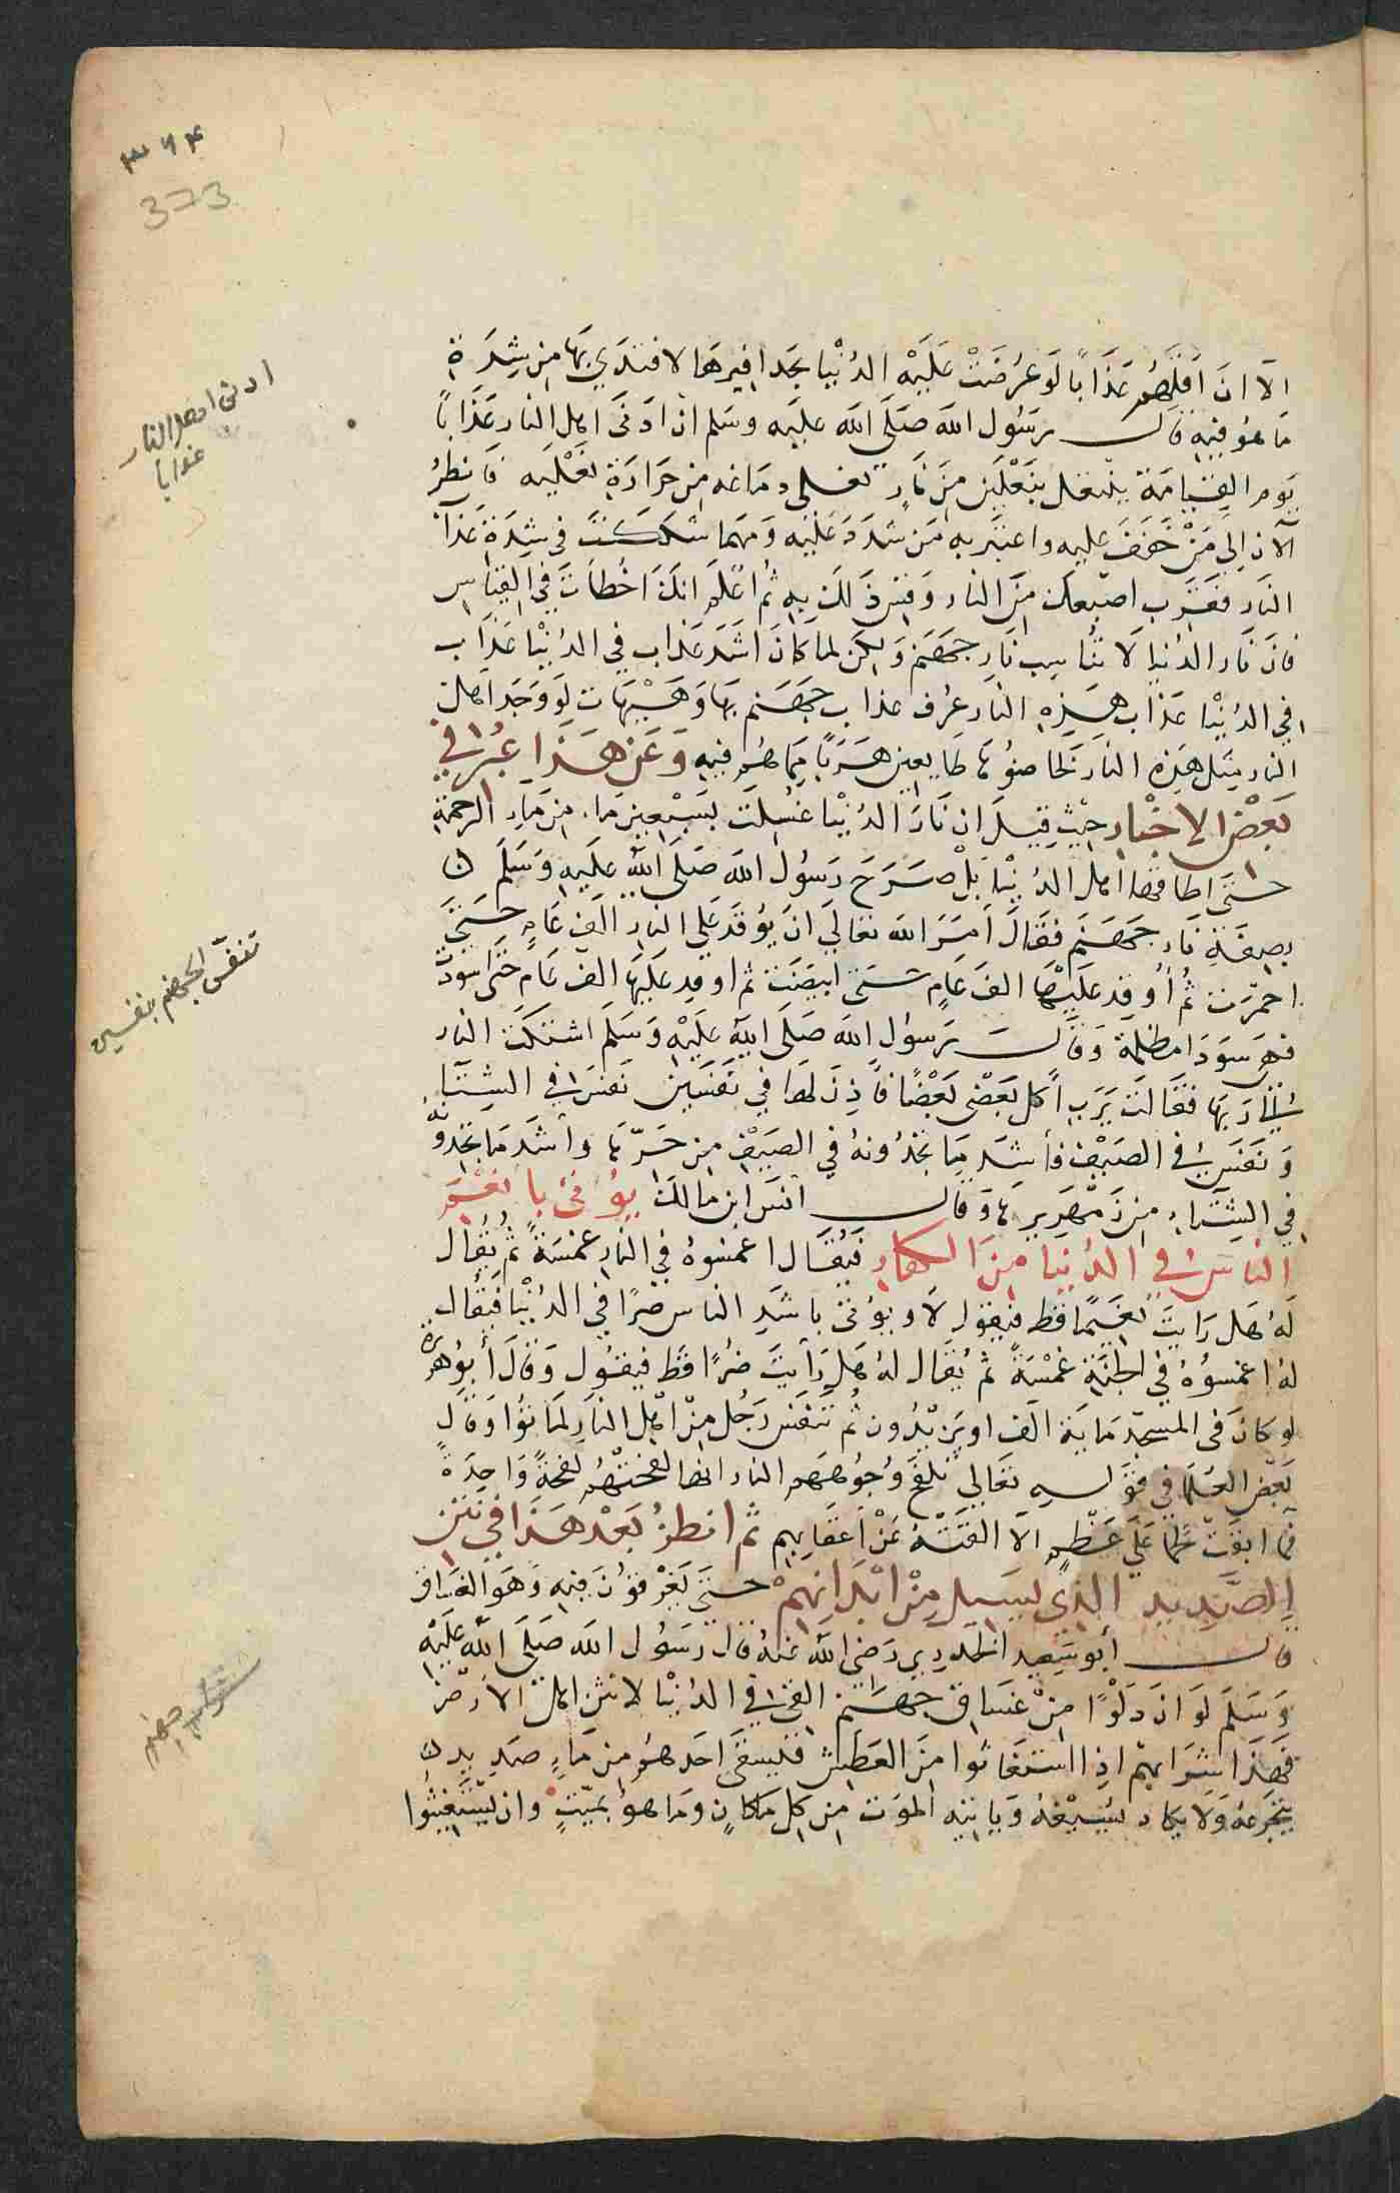 ٣٧٤
373
الا ان اقلهم عذابا لو عرضت عليه الدنيا بحدافيرها لافتدي بها من شدة
ما هو فيه قال رسول الله صلى الله عليه وسلم ان ادنى اهل النار عذابا
يوم القيامة ينتعل بنعلين من نار تغلى دماغه من حرارة نعليه فانظر
الآن الى من خفف عليه واعتبر به من شدد عليه ومهما شككت في شدة عذاب
النار فقرب اصبعك من النار وقس ذلك به ثم اعلم انك اخطات في القياس
فان نار الدنيا لا تناسب نار جهنم ولكن لما كان اشد عذاب في الدنيا عذاب
في الدنيا عذاب هذه النار عرف عذاب جهنم بها وهيهات لو وجد اهل
النار مثل هذه النار لخاضوها طايعين هربا مما هم فيه وعن هذا عبر في
بعض الاخبار حيث قيل ان نار الدنيا غسلت بسبعين ماء من ماء الرحمة
حتى اطاقها اهل الدنيا بل صرح رسول الله صلى الله عليه وسلم
بصفة نار جهنم فقال امر الله تعالي ان يوقد علي النار الف عام حتى
احمرت ثم أوقد عليها الف عام حتى ابيضت ثم اوقد عليها الف عام حتى اسودت
فهي سودا مظلمة وقال رسول الله صلى الله عليه وسلم اشتكت النار
الى ربها فقالت يرب اكل بعضى بعضا فاذن لها في نفسين نفس في الشتا
ونفس في الصيف فأشد ما تجدونه في الصيف من حرها وأشد ما تجدونه
في الشتاء من زمهريرها وقال انس ابن مالك يؤتى بأنعم
الناس في الدنيا من الكفار فيقال اغمسوه في النار غمسة ثم يقال
له هل رايت نعيما قط فيقول لا ويؤتى باشد الناس ضرا في الدنيا فيقال
له اغمسوه في الجنة غمسة ثم يقال له هل رأيت ضرا قط فيقول وقال أبو هريرة
لو كان في المسجد ماية الف او يزيدون ثم تنفس رجل من اهل النار لماتوا وقال
بعض العلما في قوله تعالي تلفح وجوههم النار انها لفحتهم لفحة واحدة
فما ابقت لحما على عظم الا القته عن اعقابهم ثم انظر بعد هذا في نتن
الصديد الذي يسيل من ابدانهم حتى يغرقون فيه وهو الغساق
قال أبو سعيد الخدري رضى الله عنه قال رسول الله صلى الله عليه
وسلم لو ان دلوا من غساق جهنم القى في الدنيا لانتن اهل الارض
فهذا شرابهم اذا استغاثوا من العطش فيسقى احدهم من ماء صديد
يتجرعه ولا يكاد يسيغه وياتيه الموت من كل مكان وما هو بميت وان يستغيثوا
ادنى اهل النار
عذابا
تنفس الجهنم بنفسين
شراب جهنم